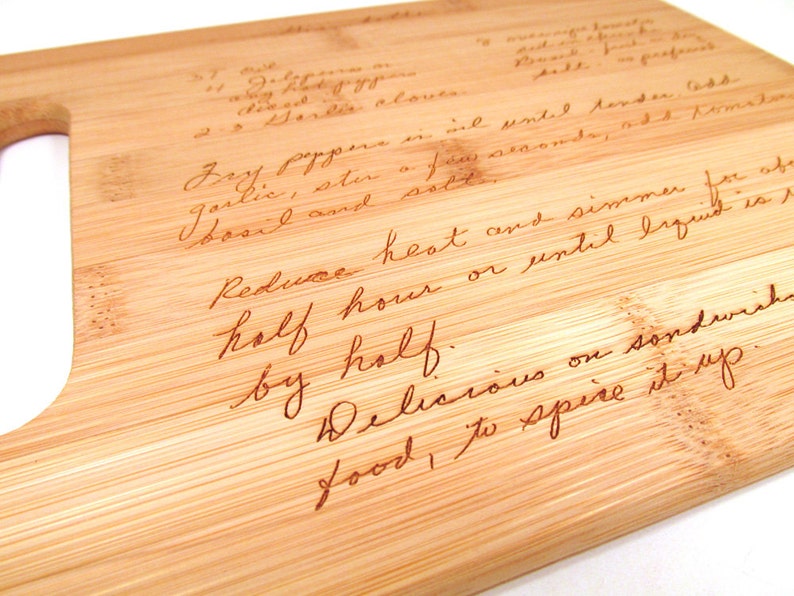 3 T oil
4 Jalapenos or
any hot peppers
diced
2-3 Garlic cloves
3 over ripe tomatoes
Basil
salt as preferred
Fry peppers in oil until tender add
garlic, stir a few seconds, add tomatoes
basil and salt.
Reduce heat and simmer for
half hour or until liquid is
by half.
Delicious on sandwichs
food, to spice it up.